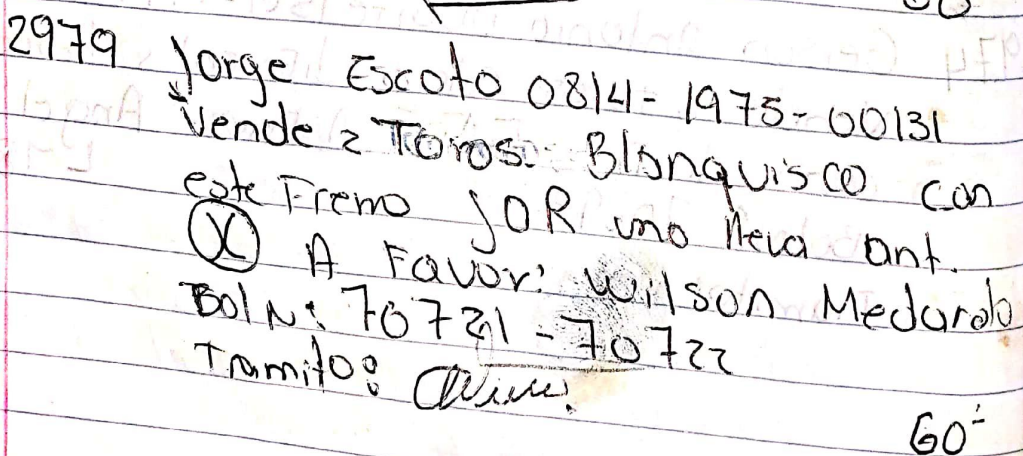 2979 Jorge Escoto 0814-1975-00131
Vende 2 Toros: Blanquisco con
este Fremo JOR uno lleva ant.
A Favor: Wilson Medardo
Bol N: 70721-70722
Tramito:
60